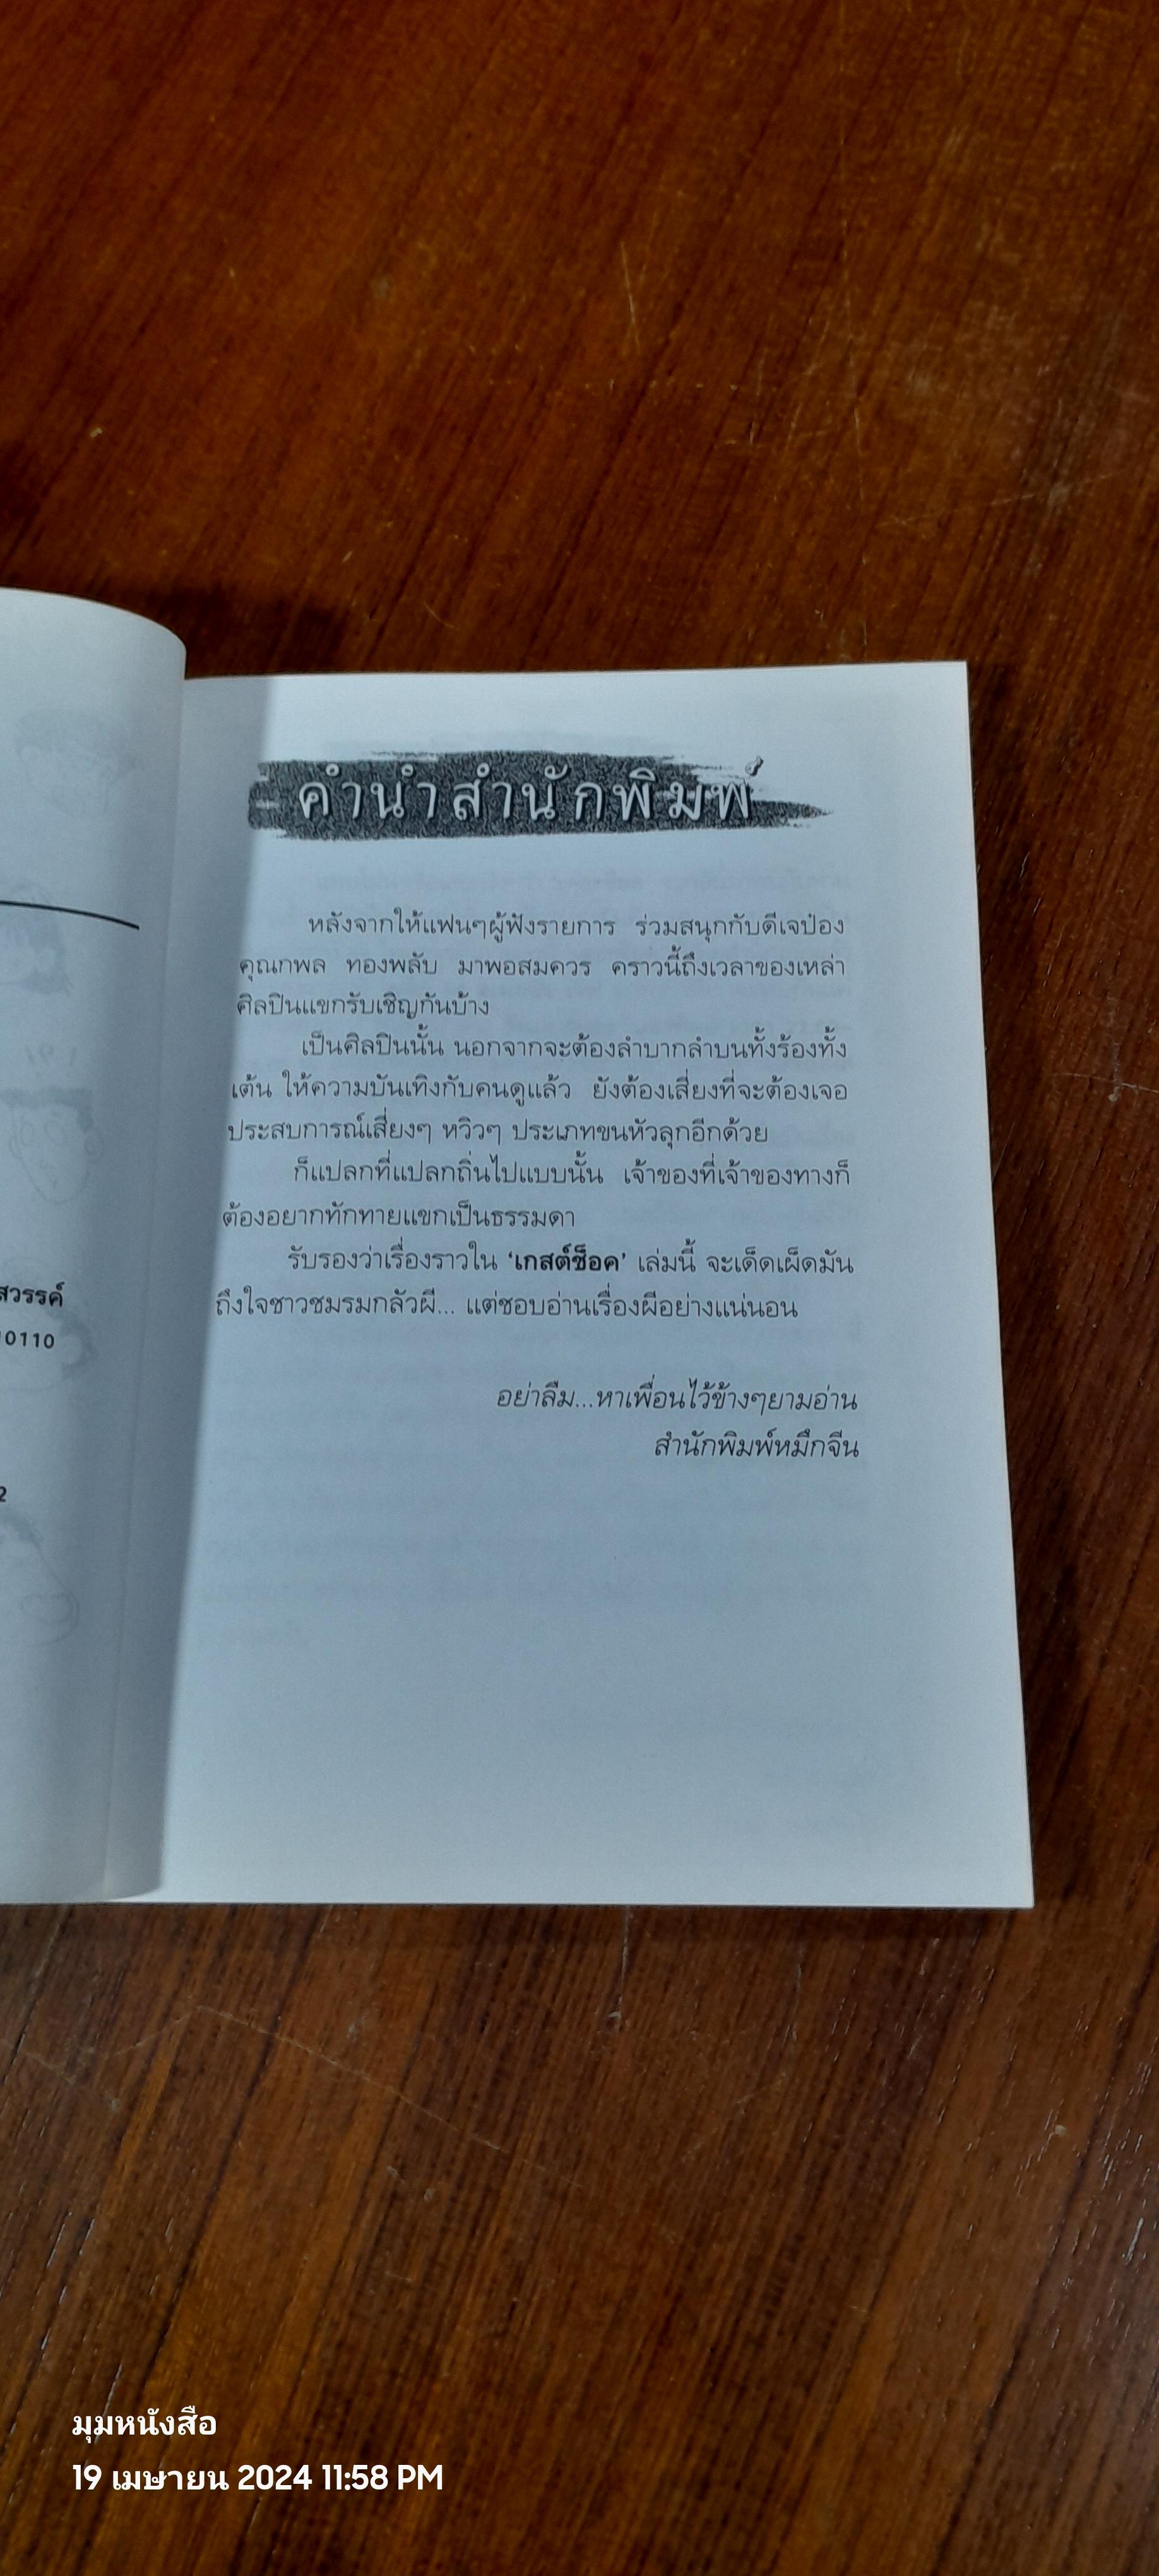 สวรรค์
10110
2
คำนำสำนักพิมพ์
หลังจากให้แฟนๆผู้ฟังรายการ ร่วมสนุกกับดีเจป๋อง
คุณกพล ทองพลับ มาพอสมควร คราวนี้ถึงเวลาของเหล่า
ศิลปินแขกรับเชิญกันบ้าง
เป็นศิลปินนั้น นอกจากจะต้องลำบากลำบนทั้งร้องทั้ง
เต้น ให้ความบันเทิงกับคนดูแล้ว ยังต้องเสี่ยงที่จะต้องเจอ
ประสบการณ์เสี่ยงๆ หวิวๆ ประเภทขนหัวลุกอีกด้วย
ก็แปลกที่แปลกถิ่นไปแบบนั้น เจ้าของที่เจ้าของทางก็
ต้องอยากทักทายแขกเป็นธรรมดา
รับรองว่าเรื่องราวใน ‘เกสต์ช็อค’ เล่มนี้ จะเด็ดเผ็ดมัน
ถึงใจชาวชมรมกลัวผี... แต่ชอบอ่านเรื่องผีอย่างแน่นอน
อย่าลืม...หาเพื่อนไว้ข้างๆยามอ่าน
สำนักพิมพ์หมึกจีน
มุมหนังสือ
19 เมษายน 2024 11:58 PM